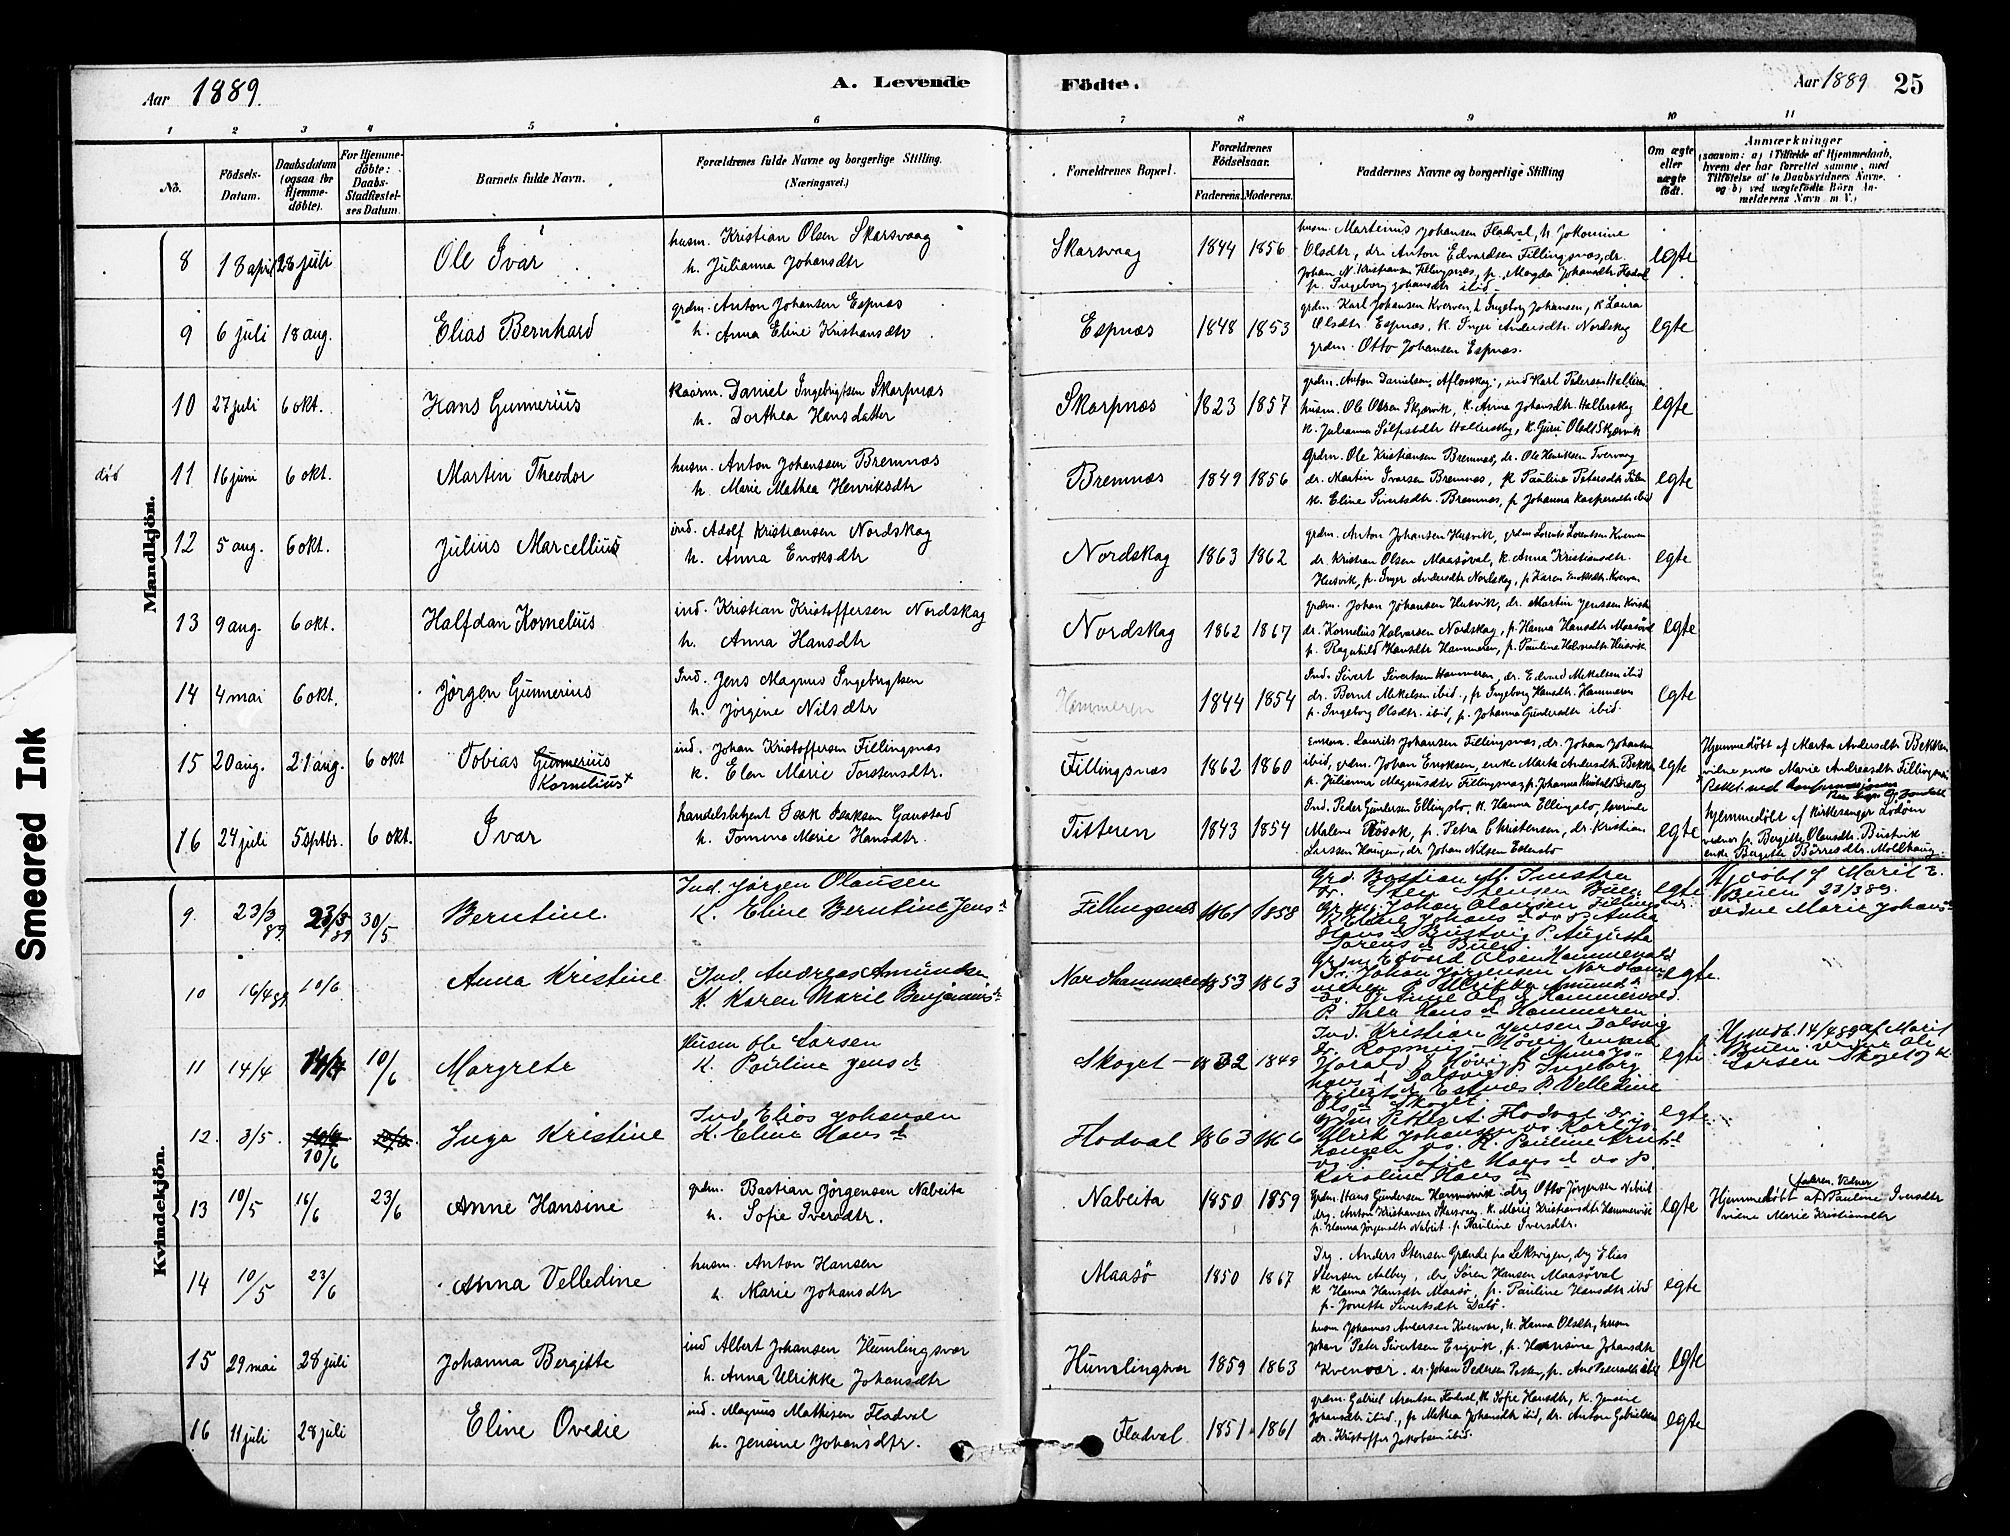 Aar 1889.
A. Levende Födte.
Aar 1889 25
1 2 3 4 5 6 7 8 9 10 11
No.
Födsels-Datum.
Daabsdatum (ogsaa for Hjemmedöbte).
For Hjemmedöbte: Daabs-Stadfæstelses Datum.
Barnets fulde Navn.
Forældrenes fulde Navne og borgerlige Stilling. (Næringsvei.)
Forældrenes Bopæl.
Forældrenes Födselsaar.
Faderens. Moderens.
Faddernes Navne og borgerlige Stilling
Om ægte eller uægte födt.
Anmærkninger (saasom: a) i Tilfælde af Hjemmedaab, hvem der har forrettet samme, med Tilföielse af to Daabsvidners Navne, og b) ved uægtefödte Börn Anmelderens Navn m. V.)
Mandkjön.
8 18 april 28 juli Ole Ivar husm. Kristian Olsen Skarsvaag
h. Julianna Johansdtr Skarsvaag 1844 1856 husm. Martinus Johansen Flodval, h. Jokomine
Olsdtr, dr. Anton Edvardsen Fillingsnæs, dr.
Johan N. Kristiansen Fillingsnæs, p. Magda Johansdtr Flodval
p. Ingeborg Johansdtr ibid. egte
9 6 juli 18 aug. Elias Bernhard grdm. Anton Johansen Espnæs
h. Anna Eline Kristiansdtr Espnæs 1848 1853 grdm. Karl Johansen Kverven, h Ingeborg Johansen, k Laura
Olsdtr Espnæs, k. Inger Andersdtr Nordskag
grdm. Otto Johansen Espnæs. egte
10 27 juli 6 okt. Hans Gunnerius Kaarm. Daniel Ingebrigtsen Skarpnæs
h. Dorthea Hansdatter Skarpnæs 1823 1857 grdm. Anton Danielsen, ind Karl Pedersen
husm. Ole Olsen Skjærvik, k. Anna Johansdtr Hallerskag
k. Julianna egte
død 11 16 juni 6 okt. Martin Theodor husm. Anton Johanssen Bremnæs
h. Marie Mathea Henriksdtr Bremnæs 1849 1856 Grdm. Ole Kristiansen Bremnæs, dr. Ole Henriksen Tvervaag
dr. Martin Ivarsen Bremnæs, p. Pauline Petersdtr
k. Eline Sivertsdtr. Bremnæs, p. Johanna Kaspersdtr ibid egte
12 5 aug. 6 okt. Julius Marcellius ind. Adolf Kristiansen Nordskag
h. Anna Enoksdtr Nordskag 1863 1862 grdm. Anton Johansen Husvik, grdm Lorents Lorentsen Kverven
dr. Kristian Olsen Maasøval, k. Anna Kristiansdtr.
Husvik, p. Inger Andersdtr Nordskag, p. Karen Enoksdtr. Kverven egte
13 9 aug. 6 okt. Halfdan Kornelius ind. Kristian Kristoffersen Nordskag
h. Anna Hansdtr Nordskag 1862 1867 grdm. Johan Johansen Husvik, dr. Martin Jenssen
dr. Kornelius Halvorsen Nordskag, p. Hanna Hansdtr Maasøval
p. Ragnhild Hansdtr Hammeren, p. Pauline Halvorsdtr Husvik egte
14 4 mai 6 okt. Jörgen Gunnerius Ind. Jens Magnus Ingebrigtsen
h. Jörgine Nilsdtr Hammeren 1844 1854 Ind. Sivert Sivertsen Hammeren, dr. Edvard Mikelsen ibid
dr. Bernt Mikelsen ibid., p. Ingeborg Hansdtr Hammeren
p. Ingeborg Olsdtr. ibid, p. Johanna Gundersdtr ibid. egte
15 20 aug. 21 aug. 6 okt Tobias Gunnerius
Kornelius+ ind. Johan Kristoffersen Fillingsnæs
k. Elen Marie Torstensdtr. Fillingsnæs 1862 1860 Laurits Johansen Fillingsnæs, dr. Johan Johansen
ibid, grdm. Johan Enoksen, enke Marta Andersdtr Bekken
p. Julianna Magnusdtr Fillingsnæs, p. Johanna egte Hjemmedøbt af Marta Andersdtr Bekken
vidne enke Marie Andreasdtr Fillingsnæs
Rettet ved konfirmasjonen
16 24 juli 5 sptbr. 6 okt. Ivar handelsbetjent Isak Isaksen Ganstad
h. Tomine Marie Hansdtr. Titteren 1843 1854 Ind. Peder Gundersen Ellingslø, k. Hanna Ellingslø,
Malene Røsok, p. Petra Christensen, dr. Kristian
Larssen Haugen, dr. Johan Nilsen egte hjemmedøbt af kirkesanger Lødøen
vidner p. Bergitte Olausdtr. Bustvik
enke Bergitte Børresdtr. Mollhaug
Kvindekjön.
9. 23/3 89. 23/3 89 30/5 Berntine. Ind. Jørgen Olausen
K. Eline Berntine Jens d. Fillingsnes 1861 1858 Grd. Bastian M.
dr. Sten Stensen Buen
Gr.m. Johan Olausen Filling
Hans d. Bustvig P. Augusta
Sørens d. Buen. egte H. døbt af Marit E.
Buen 23/3 89.
vidne Marie Johans d.
10 16/4 89. 10/6. Anna Kristine Ind. Andreas Amundsen
K. Karen Marie Benjamins d. Nordhammeren 1853 1863 Gr.m. Edvard Olsen Hammervold
Dr. Johan Jørgensen Nordham
meren P. Ulrikke Amund d.
P. Anne Ols d. Hammervold.
P. Thea Hans d. Hammeren. egte.
11 14/4 14/4 10/6 Margrete Husm Ole Larsen
K. Pauline Jens d. Skoget 1832 1849 Ind. Kristian Jensen Dalsvig
Dr. Rasmus Høvig
Harald J. Høvig
Hans d. Dalsvig P. Ingeborg
P. Velledine
Ols d. Skoget. egte. Hjmdb. 14/4 89 af Marit
Buen. vidne Ole
Larsen Skoget og K.
12. 3/5. 10/6 10/6. Inga Kristine Ind. Elias Johansen
K. Eline Hans d. Flodval 1863 1866 Gr.m. Petter A. Flodval dr.
Ulrik Johansen
Pauline
P. Sofie Hans d. P.
Karoline Hans d. egte
13 10/5 16/6 23/6 Anne Hansine grdm. Bastian Jörgensen Nabeita
h. Sofie Iversdtr. Nabeita 1850 1859 Grdm. Hans Gundersen Hammervik drg Otto Jörgensen Nabeit
drg. Anton Kristiansen Skarsvaag. k. Marie Kristiansdtr Hammervik
p. Hanna Jörgensdtr Nabeit. p. Pauline Iversdtr. egte Hjemmedøbt af Pauline Iversdtr
vidne Marie Kristiansdtr
14 10/5 23/6 Anna Velledine husm. Anton Hansen
h. Marie Johansdtr Maasö 1850 1867 Drg. Anders Stensen Grande fra Leksvigen, drg Elias
Stensen Aalbrg, dr Sören Hansen Maasöval
k Hanna Hansdtr Maasö, p. Pauline Hansdtr ibid
p. Jorette Sivertsdtr Dalö. egte
15 29 mai 28 juli Johanna Bergitte ind Albert Johansen Humlingsvær
h. Anna Ulrikke Johansdtr Humlingsvær 1859 1863 husm Johannes Andersen Kvenvær, h. Hanna Olsdtr, husm
Johan Peter Sivertsen Engvik, p. Hansine Johansdtr
Kvenvær. dr. Johan Pedersen egte
16 11 juli 28 juli Eline Ovedie ind. Magnus Mathisen Flodval
h. Jensine Johansdtr. Flodval 1851 1861 grdm. Gabriel Arentsen Flodval, k Sofie Hansdtr, k. Jensine
Johansdtr ibid., p. Mathea Johansdtr ibid, dr. Anton Gabrielsen
dr. Kristoffer Jakobsen ibid. egte
Smeared Ink